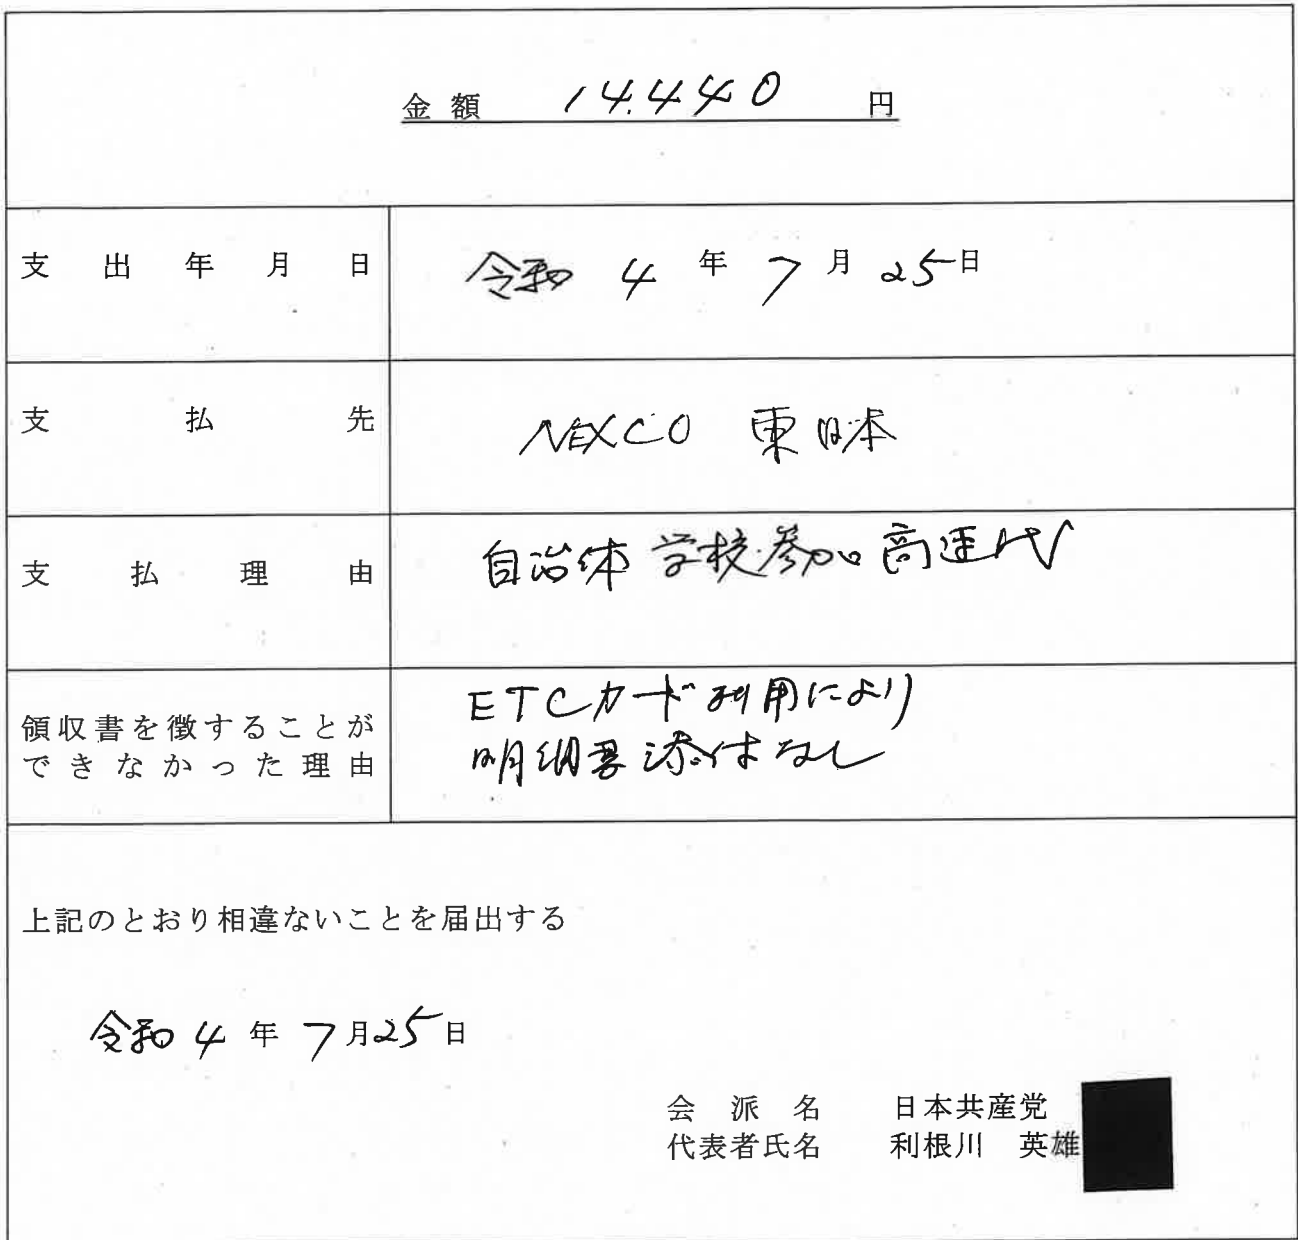 金額 14.440 円
支出年月日 令和 4 年 7 月 25日
支払先 NEXCO 東日本
支払理由 自治体学校参加高速代
領収書を徴することが
できなかった理由
ETCカード利用により
明細書添付なし
上記のとおり相違ないことを届出する
令和 4 年 7 月25日
会派名 日本共産党
代表者氏名 利根川 英雄